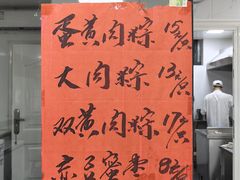 蛋黄肉粽 15元
大肉粽 13元
双黄肉粽 17元
蜜枣 8元